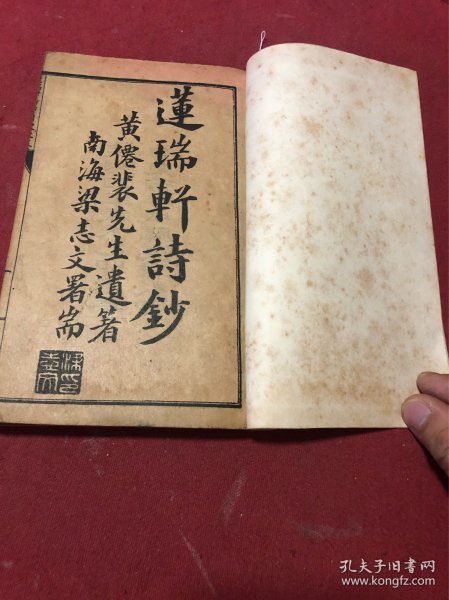 蓮瑞軒詩鈔
黃僊裴先生遺著
南海梁志文署耑
孔夫子旧书网
www.kongfz.com